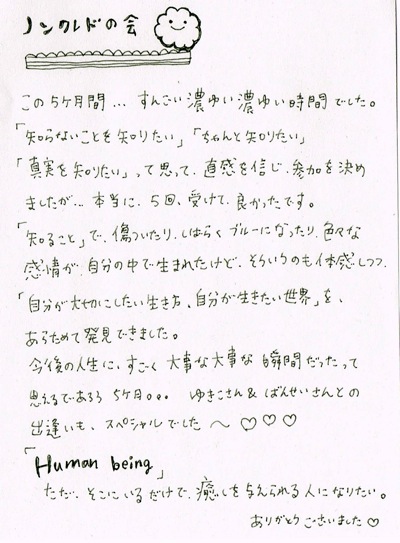 ノンクレドの会
この5ヶ月間... すんごい濃ゆい濃ゆい時間でした。
「知らないことを知りたい」「ちゃんと知りたい」
「真実を知りたい」って思って、直感を信じ、参加を決め
ましたが... 本当に、5回、受けて、良かったです。
「知ること」で、傷ついたり、しばらくブルーになったり、色々な
感情が、自分の中で生まれたけど、そういうのも体感しつつ、
「自分が大切にしたい生き方、自分が生きたい世界」を、
あらためて発見できました。
今後の人生に、すごく大事な大事な瞬間だったって
思えるであろう5ヶ月。。。 ゆきこさん&ばんせいさんとの
出逢いも、スペシャルでした〜♡♡♡
「Human being」
ただ、そこにいるだけで、癒しを与えられる人になりたい。
ありがとうございました♡